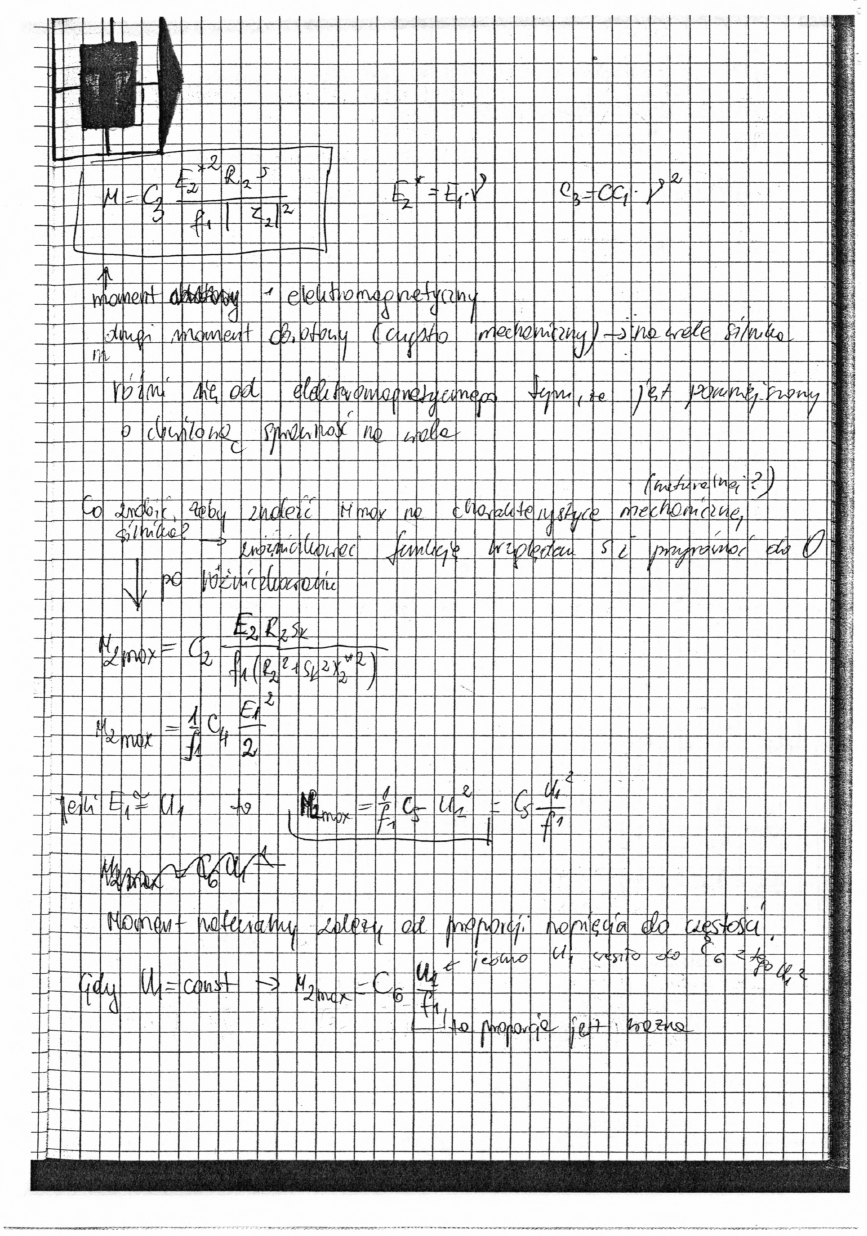 M = C₃ E₂*² R₂ s / f₁ |Z₂|²    E₂* = E₁·ν    C₃ = CC₁·ν²
↑
moment - elektromagnetyczny
drugi moment obrotowy (czysto mechaniczny) → na wale silnika
różni się od elektromagnetycznego tym, że jest pomniejszony
o chwilową sprawność na wale
(naturalnej?)
Co zrobić, żeby znaleźć Mmax na charakterystyce mechanicznej
silnika? → zróżniczkować funkcję względem s i przyrównać do 0
↓ po różniczkowaniu
M₂max = C₂ E₂ R₂ sk / f₁(R₂² + sk² X₂*²)
M₂max = 1/f₁ C₄ E₁²/2
jeśli E₁ ≅ U₁ to M₂max = 1/f₁ C₅ U₁² = C₅ U₁²/f₁
Moment naturalny zależy od proporcji napięcia do częstości.
Gdy U₁ = const → M₂max = C₆ U₁/f₁ ← jedno U₁ weszło do C₆ z tego U₁²
ta proporcja jest ważna